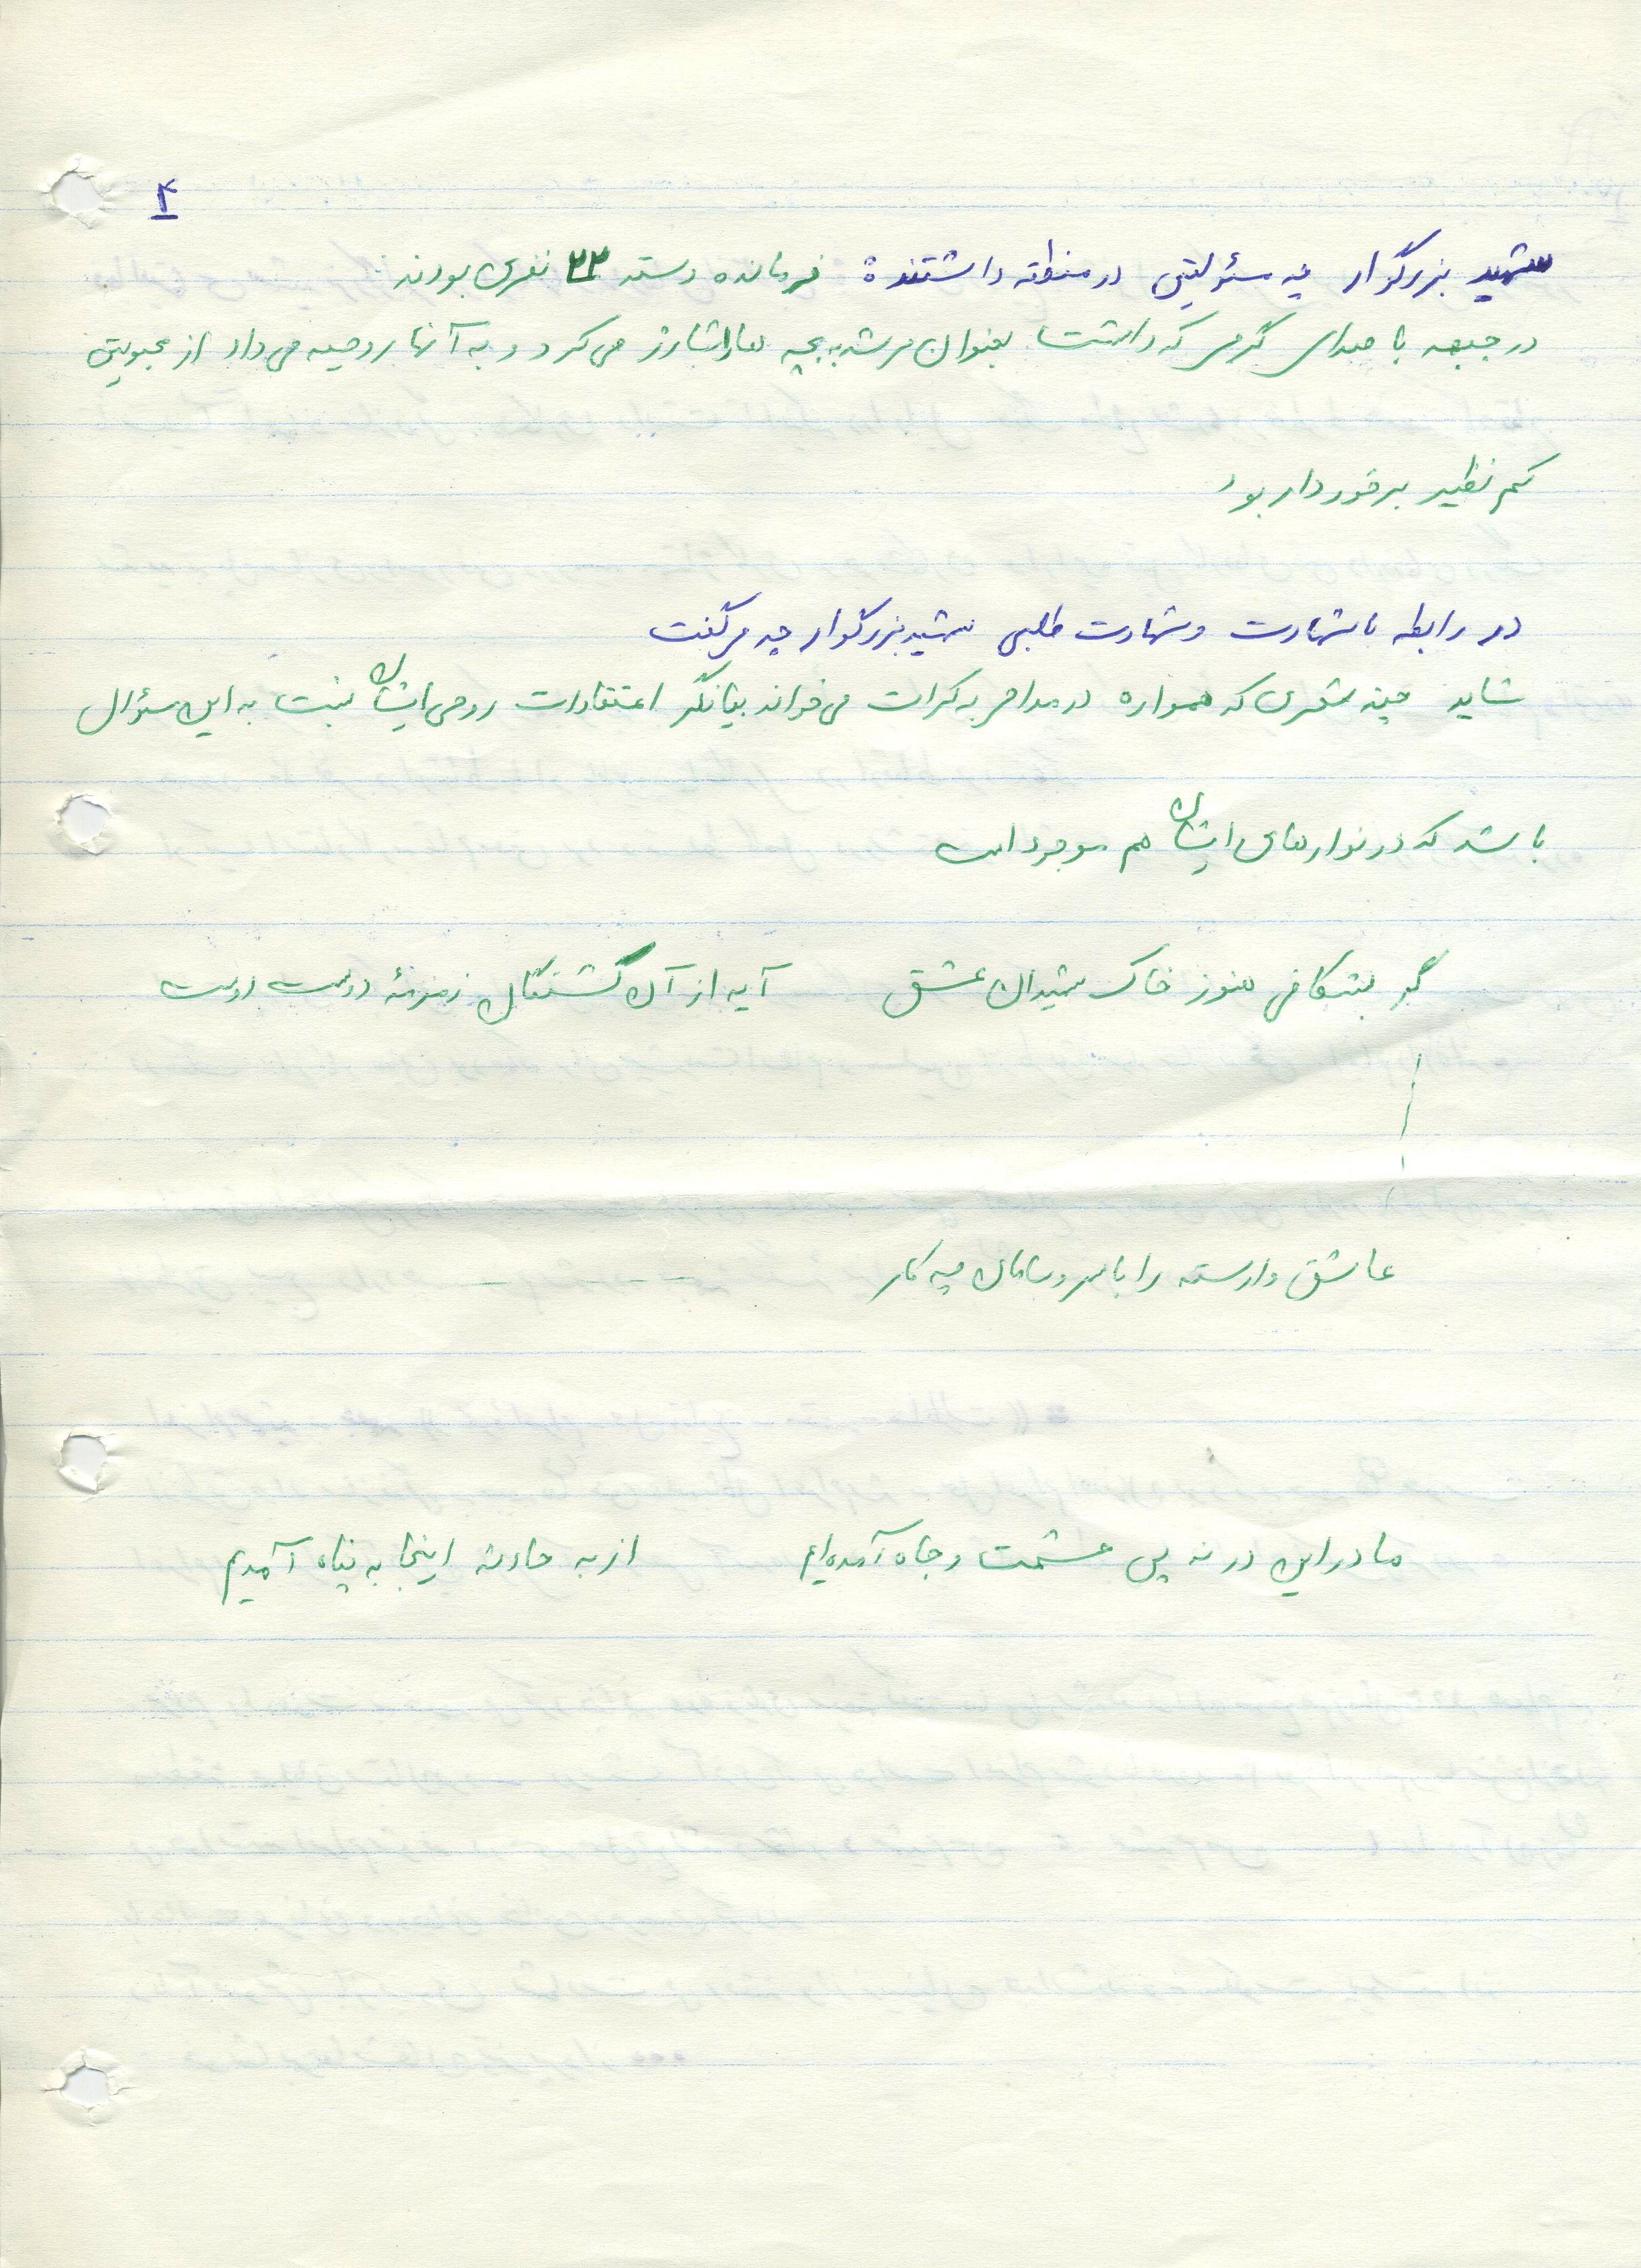 ۴
شهید بزرگوار چه مسئولیتی در منطقه داشتند؟ فرمانده دسته ۲۲ نفری بودند
در جبهه با صدای گرمی که داشت بعنوان مرشد به بچه ها را شارژ می کرد و به آنها روحیه می داد از محبوبیتی
کم نظیر برخوردار بود
در رابطه با شهادت و شهادت طلبی شهید بزرگوار چه میگفت
شاید چند شعری که همواره در مداحی به کرات می خواند بیانگر اعتقادات روحی ایشان نسبت به این سئوال
باشد که در نوارهای ایشان هم موجود است
گر بشکافی هنوز خاک شهیدان عشق آید از آن کشتگان زمزمهٔ دوست دوست
عاشق وارسته را با سر و سامان چه کار - - - - -
ما در این در نه پی حشمت و جاه آمده‌ایم از بد حادثه اینجا به پناه آمدیم